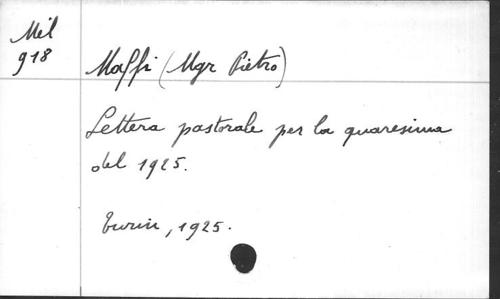 Mél
918
Maffi (Mgr Pietro)
Lettera pastorale per la quaresima
del 1925.
Turin, 1925.